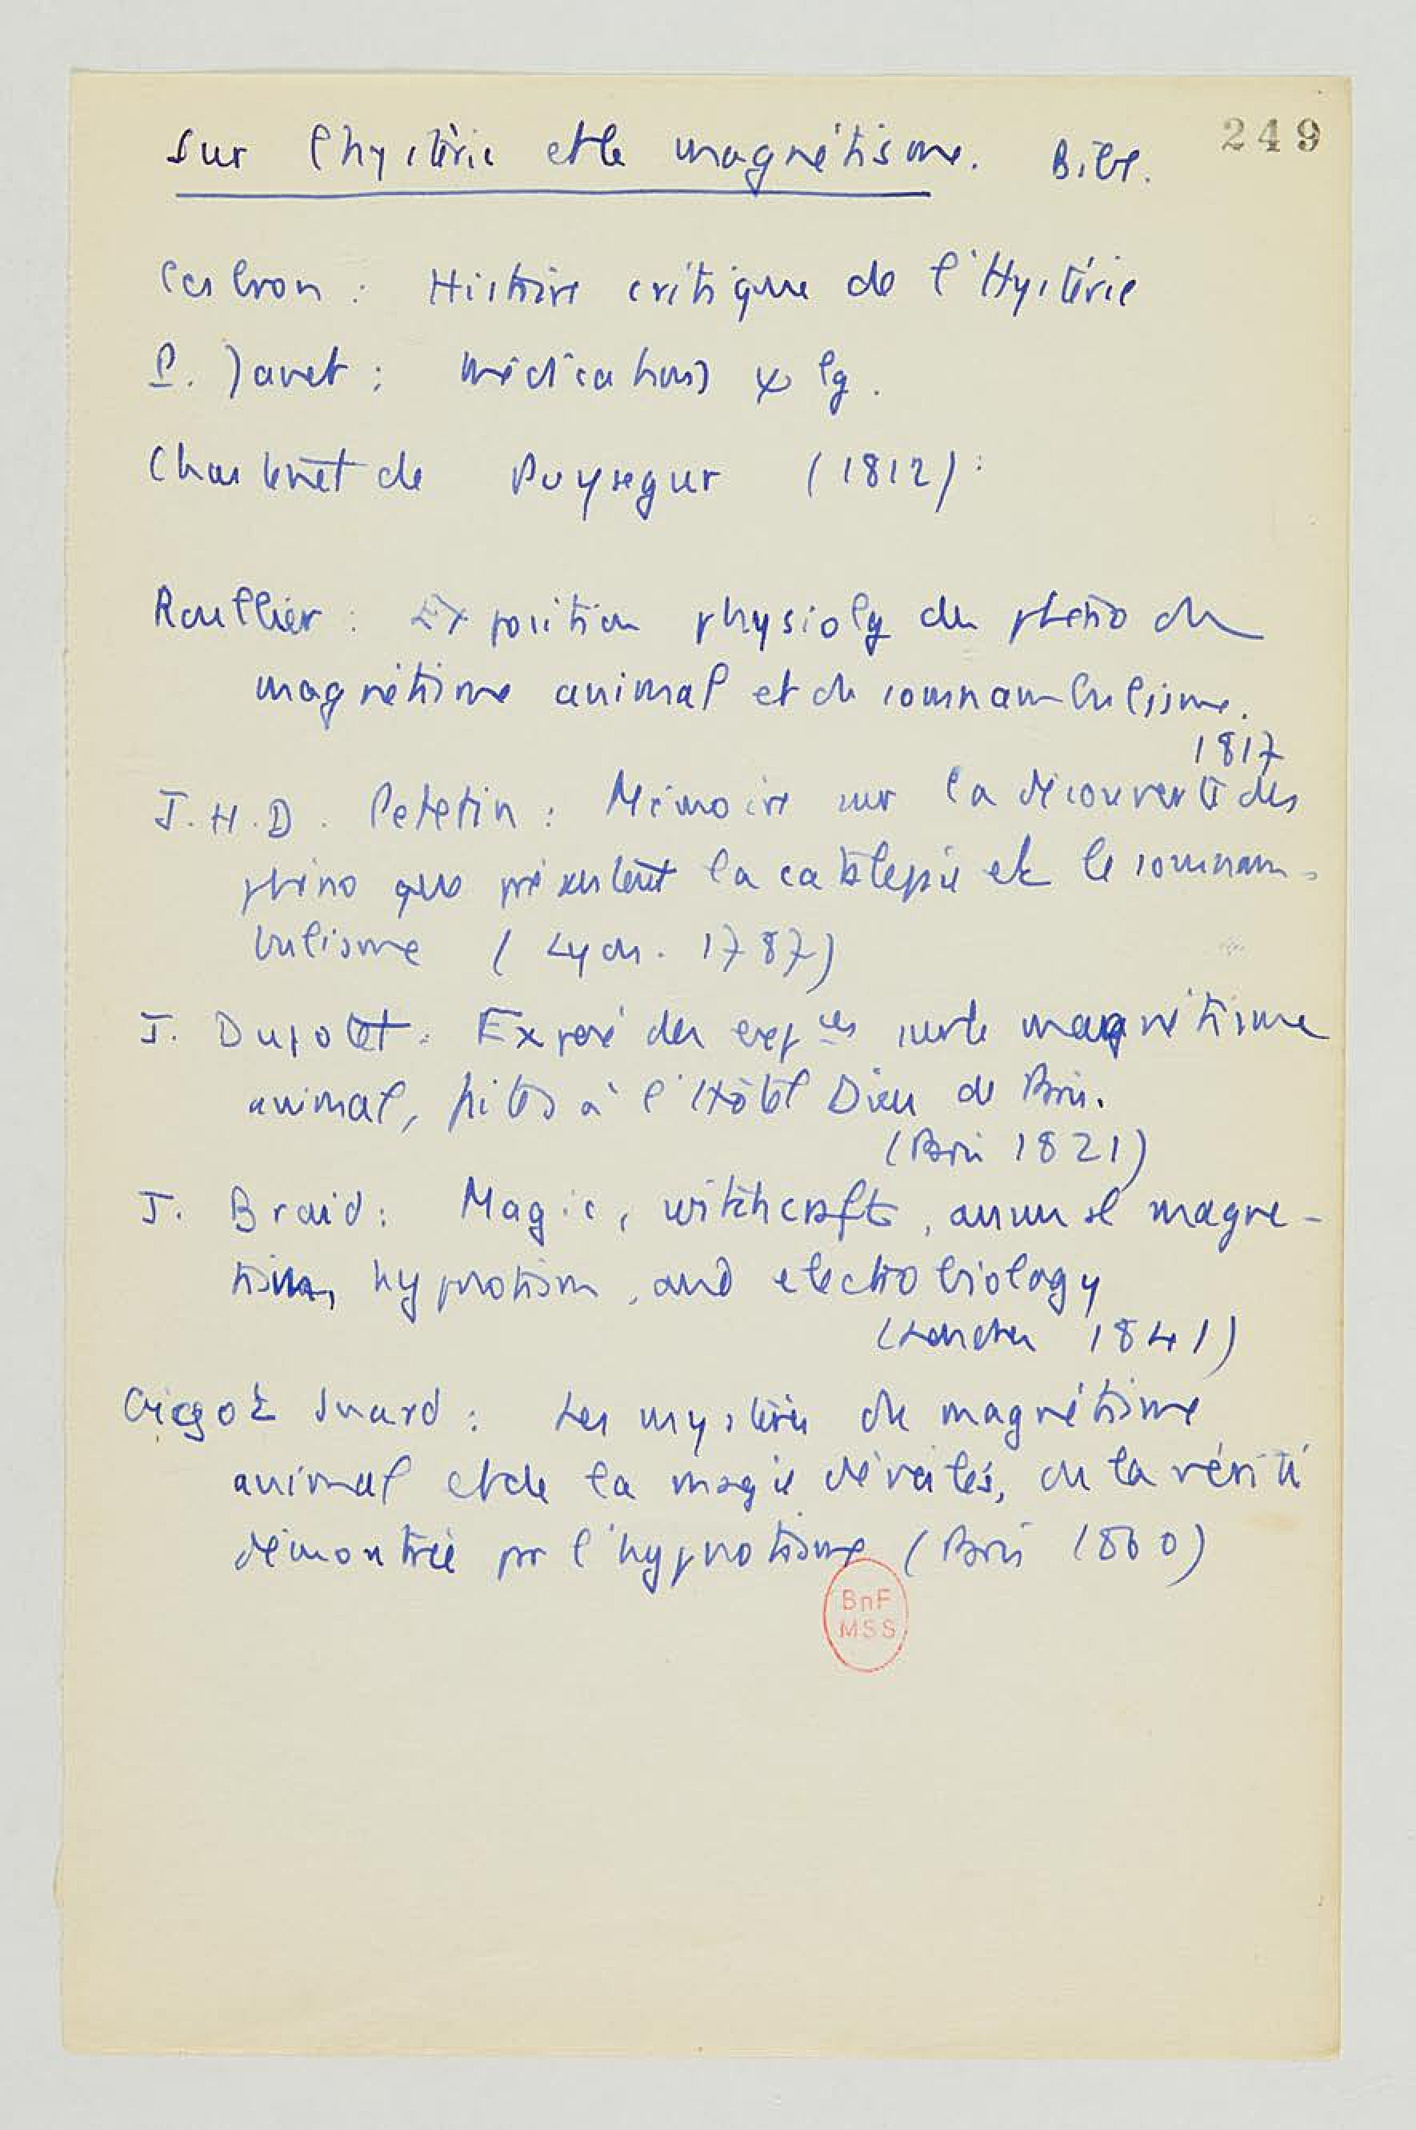 249
Sur l'hystérie et le magnétisme. Bibl.
Cesbron : Histoire critique de l'Hystérie
P. Janet : Médications ψ lg.
Chastenet de Puysegur (1812) :
Roullier : Exposition physiolg du phéno du
magnétisme animal et du somnambulisme.
1817
J.H.D. Petetin : Mémoire sur la découverte des
phéno que présentent la catalepsie et le somnam-
bulisme (Lyon. 1787)
J. Dupotet : Exposé des expces sur le magnétisme
animal, faites à l'Hôtel Dieu de Paris.
(Paris 1821)
J. Braid : Magic, witchcraft, animal magne-
tism, hypnotism, and electro biology
(London 1841)
Gigot Suard : Les mystères du magnétisme
animal et de la magie dévoilés, ou la vérité
démontrée par l'hypnotisme (Paris 1860)
BnF
MSS